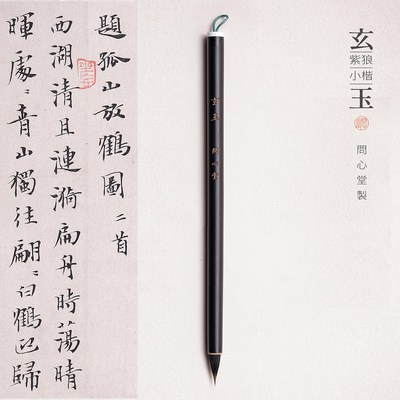 題孤山放鶴圖二首
西湖清且漣漪扁舟時蕩晴
暉處處青山獨往翩翩白鶴迎歸
玄玉
紫狼
小楷
問心堂製
玄玉